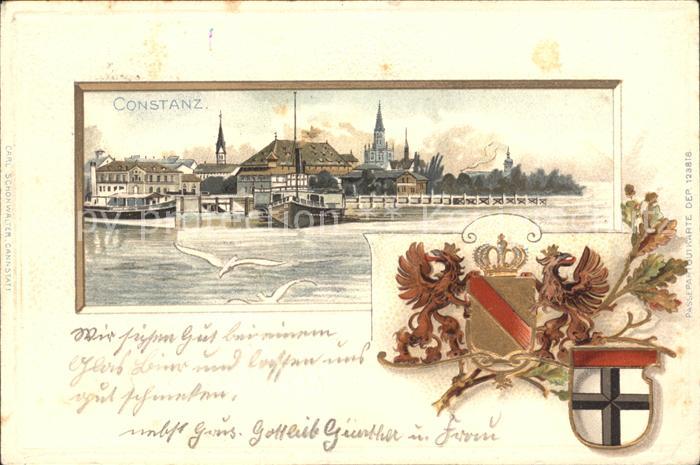 CONSTANZ.
CARL SCHÖNWALTER, CANNSTATT
PASSEPARTOUTKARTE DEP. 123818
Wir sitzen Gut bei einem
Glas Bier und lassen uns
gut schmeken.
nebst Grus. Gottlieb Günther u. Frau